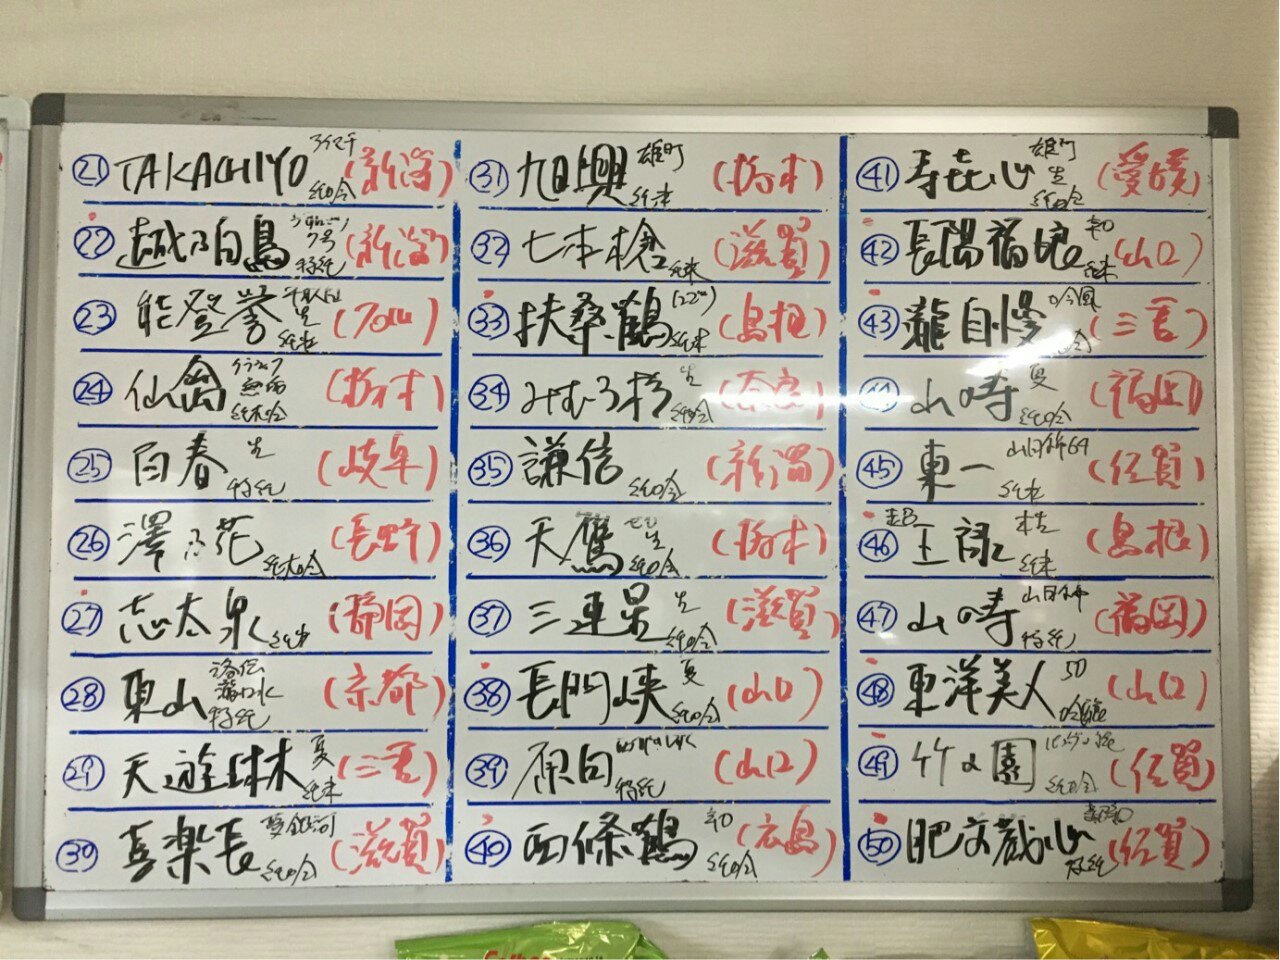 ㉑ TAKACHIYO 純吟 (新潟)
㉒ 越乃白鳥 7号 特純 (新潟)
㉓ 能登誉 生 純米 (石川)
㉔ 仙禽 純米吟 (栃木)
㉕ 百春 生 特純 (岐阜)
㉖ 澤乃花 純大吟 (長野)
㉗ 志太泉 純米 (静岡)
㉘ 東山 特純 (京都)
㉙ 天遊琳 夏 純米 (三重)
㉚ 喜楽長 夢銀河 純吟 (滋賀)
㉛ 旭興 雄町 純米 (栃木)
㉜ 七本槍 純米 (滋賀)
㉝ 扶桑鶴 にごり 純米 (島根)
㉞ みむろ杉 生 純吟 (奈良)
㉟ 謙信 純吟 (新潟)
㊱ 天鷹 生 純吟 (栃木)
㊲ 三連星 生 純吟 (滋賀)
㊳ 長門峡 夏 純吟 (山口)
㊴ 原田 特純 (山口)
㊵ 西條鶴 辛口 純吟 (広島)
㊶ 寿喜心 雄町 生 純吟 (愛媛)
㊷ 長陽福娘 辛口 純米 (山口)
㊸ 瀧自慢 (三重)
㊹ 山の寿 夏 純吟 (福岡)
㊺ 東一 山田錦64 純米 (佐賀)
㊻ 王祿 超辛 純米 (島根)
㊼ 山の寿 山田錦 特純 (福岡)
㊽ 東洋美人 50 吟醸 (山口)
㊾ 竹の園 純吟 (佐賀)
㊿ 肥前蔵心 特純 (佐賀)